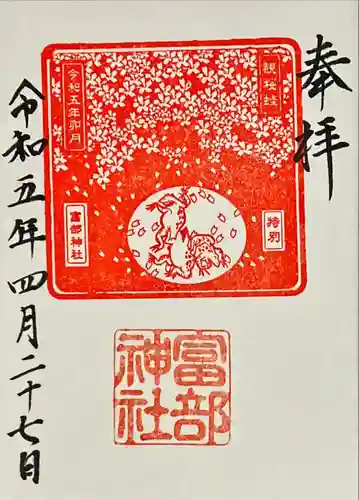 奉拝
観桜蛙
特別
令和五年卯月
富部神社
富部神社
令和五年四月二十七日